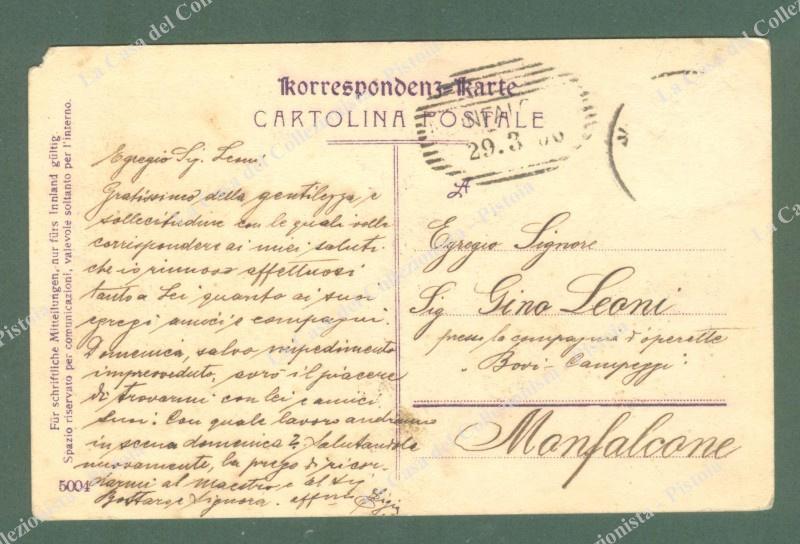 Korrespondenz-Karte
CARTOLINA POSTALE
29.3
Für schriftliche Mitteilungen, nur fürs Innland gültig.
Spazio riservato per comunicazioni, valevole soltanto per l'interno.
Egregio Sig. Leoni,
Gratissimo della gentilezza e
sollecitudine con le quali volle
corrispondere ai miei saluti
che io rinnovo affettuosi
tanto a Lei quanto ai suoi
egregi amici e compagni.
Domenica, salvo impedimento
impreveduto, avrò il piacere
di trovarmi con lei e amici
suoi. Con quale lavoro andranno
in scena domenica? Salutandola
nuovamente, la prego di ricor-
darmi al maestro e al Sig
Signora. affmo
5004
A
Egregio Signore
Sig Gino Leoni
presso la compagnia d'operette
"Bovi-Campeggi"
Monfalcone
La Casa del Collezionista - Pistoia